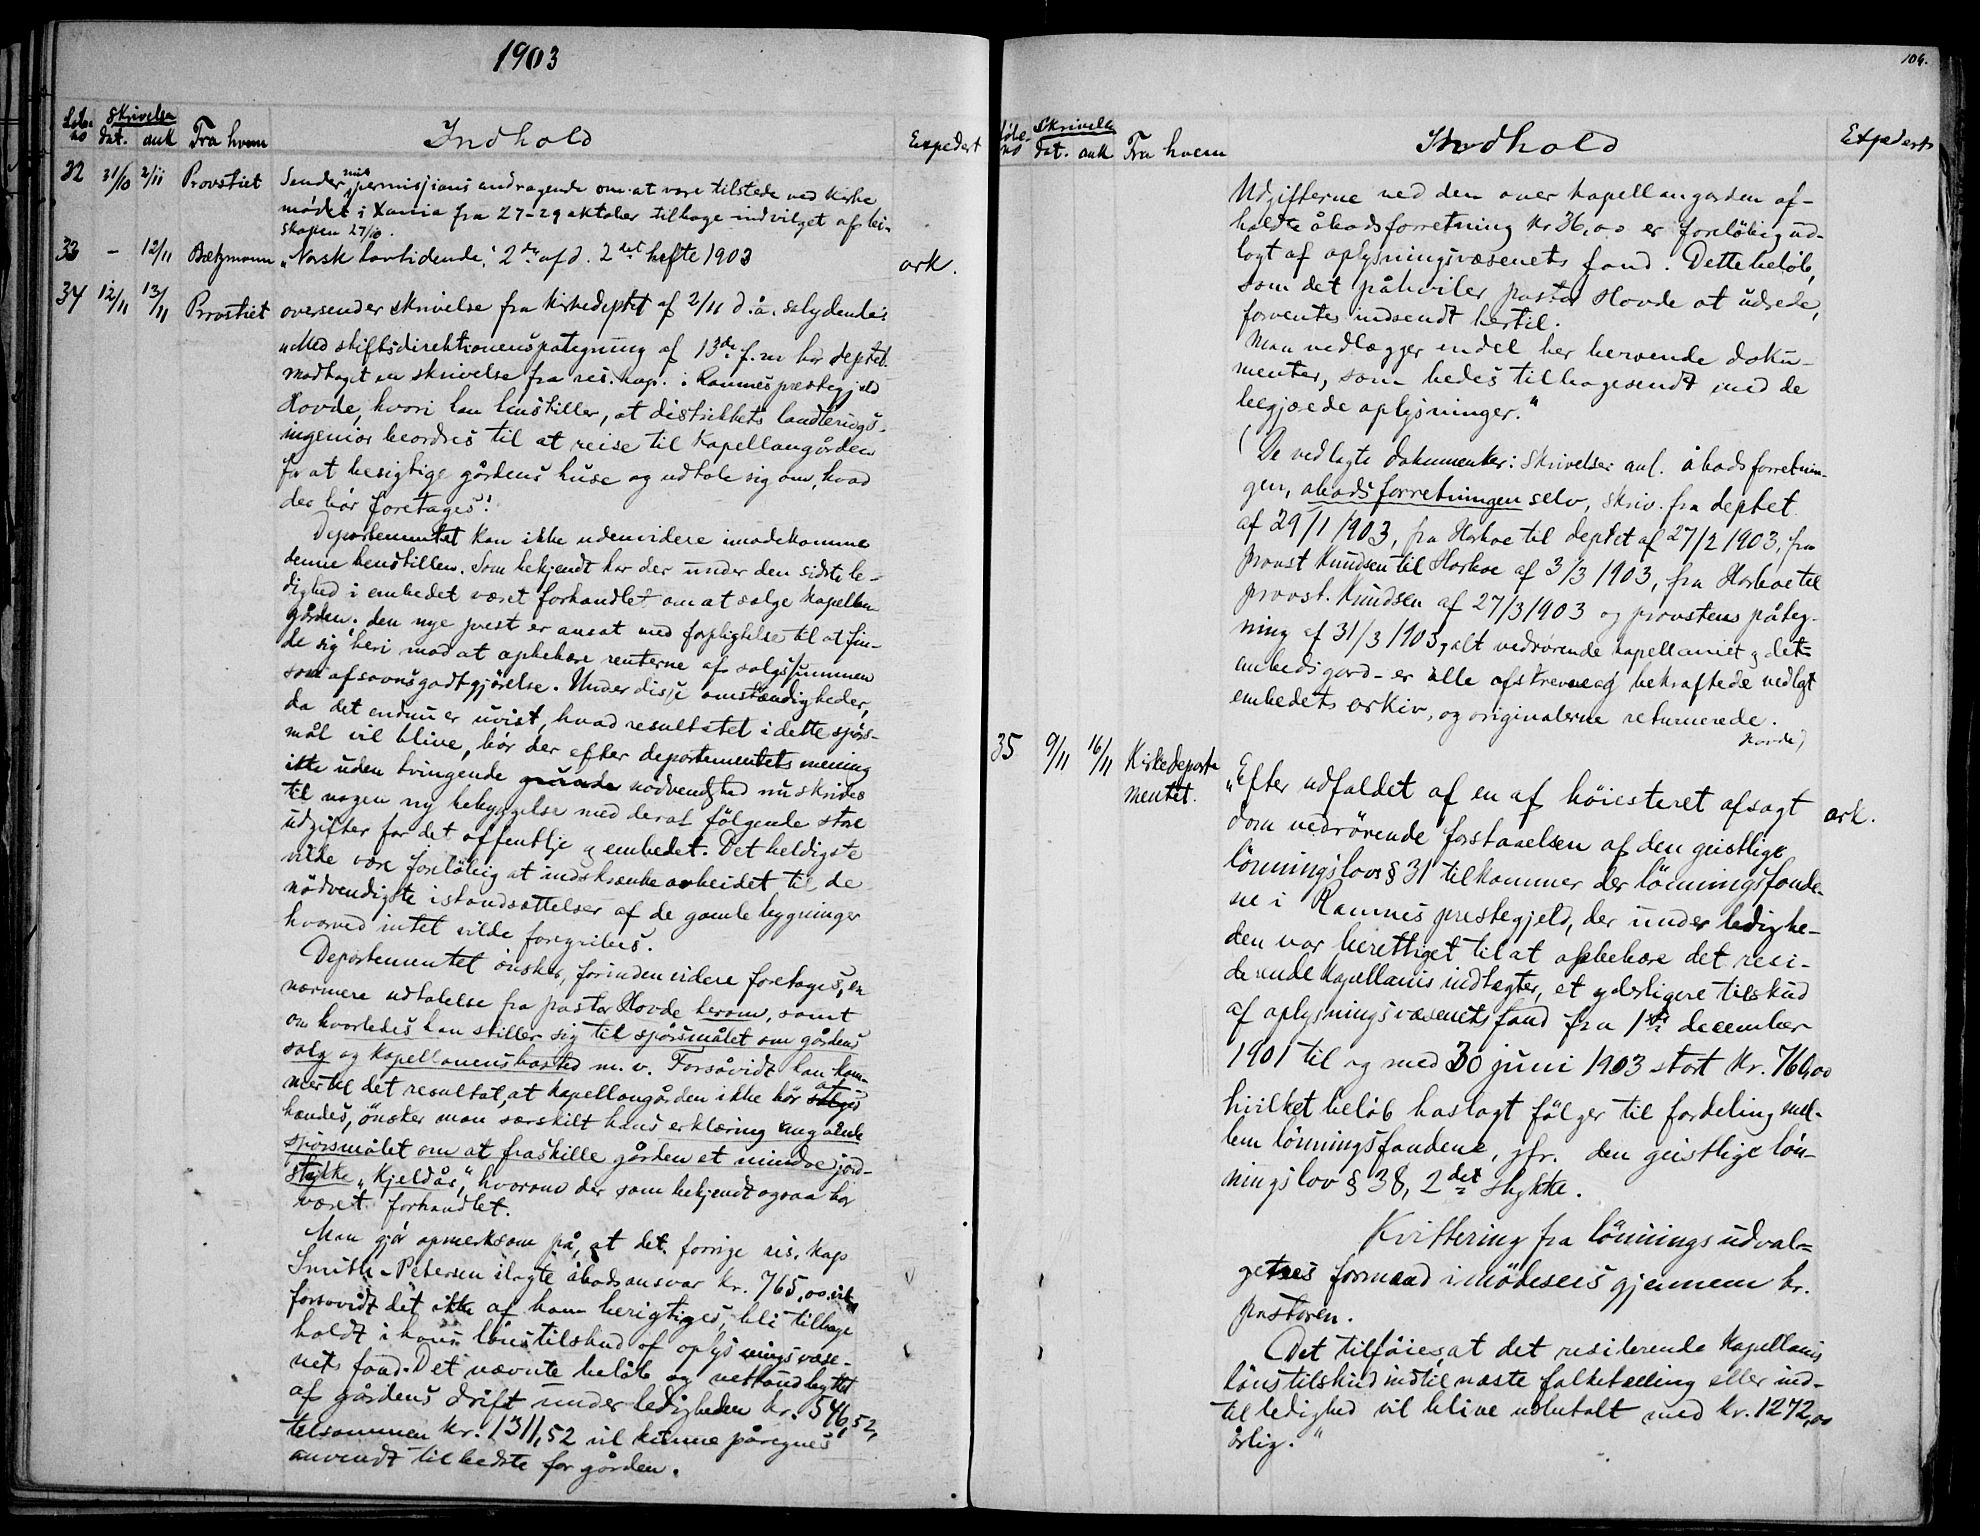 1903
Löbe-
no
Skrivelse
dat. ank
Fra hvem
Indhold
Expedert
32 31/10 2/11 Provstiet
Sender mit permissjons andragende om at være tilstede ved kirke
mödet i Xania fra 27-29 oktober tilbage indvilget af bi-
skopen 27/10.
33 - 12/11 Bætzmann „Norsk lovtidende," 2den afd. 2det hefte 1903 ark.
34 12/11 13/11 Provstiet oversender skrivelse fra kirkedeptet af 2/11 d.å. salydende:
„Med stiftsdirektionens påtegning af 13de f.m har deptet.
modtaget en skrivelse fra res. kap. i Ramnes prestegjeld
Hovde, hvori han henstiller, at distriktets landbrugs-
ingeniör beordres til at reise til kapellangården
for at besigtige gårdens huse og udtale sig om, hvad
der bör foretages!
Departementet kan ikke udenvidere imödekomme
denne henstillen. Som bekjendt har der under den sidste le-
dighed i embedet været forhandlet om at sælge kapellan
gården; den nye prest er ansat med forpligtelse til at fin-
de sig heri mod at oppebære renterne af salgssummen
som afsavnsgodtgjörelse. Under disse omstændigheder,
da det endnu er uvist, hvad resultatet i dette spörs-
mål vil blive, bör der efter departementets mening
ikke uden tvingende grunde nödvendighed nu skrides
til nogen ny bebyggelse med deraf fölgende store
udgifter for det offentlije og embedet. Det heldigste
vilde være forelöbig at indskrænke arbeidet til de
nödvendigste istandsættelser af de gamle bygninger
hvorved intet vilde foregribes.
Departementet önsker, forinden videre foretages, en
nærmere udtalelse fra pastor Hovde herom, samt
om hvorledes han stiller sig til spörsmålet om gårdens
salg og kapellanens bosted m.v. Forsåvidt han kom-
mer til det resultat, at kapellangården ikke bör sælges af
hændes, önsker man særskilt hans erklæring angående
spörsmålet om at fraskille gården et mindre jord-
stykke „Kjeldås", hvorom der som bekjendt ogsaa har
været forhandlet.
Man gjör opmerksom på, at det forrige res. kap
Smith-Petersen ilagte åbodsansvar kr. 765,00 vil
forsovidt det ikke af ham berigtiges, bli tilbage
holdt i hans lönstilskud af oplysningsvæse-
nets fond. Det nævnte belöb og nettoudbyttet
af gårdens drift under ledigheden kr. 546,52,
tilsammen kr. 1311,52 vil kunne påregnes
anvendt til bedste for gården.
104.
Löbe-
no
Skrivelse
dat. ank
Fra hvem
Indhold
Expedert
Udgifterne ved den over kapellangarden af-
holdte åbodsforretning kr 36,00 er forelöbig ud-
lagt af oplysningsvæsenets fond. Dette belöb,
som det påhviler pastor Hovde at udrede,
forventes indsendt hertil.
Man vedlægger endel her beroende doku-
menter, som bedes tilbagesendt med de
begjærede oplysninger."
(De vedlagte dokumenter: Skrivelser anl. åbodsforretnin-
gen, åbodsforretningen selv, skriv. fra deptet
af 29/1 1903, fra Horboe til deptet af 27/2 1903, fra
provst Knudsen til Horboe af 3/3 1903, fra Horboe til
provst. Knudsen af 27/3 1903 og provstens påteg-
ning af 31/3 1903, alt vedrörende kapellaniet og dets
embedsgard - er alle afskrevne og bekræftede vedlagt
embedets arkiv, og originalerne returnerede.
Hovde)
35 9/11 16/11 Kirkedeparte
mentet.
„Efter udfaldet af en af höiesteret afsagt ark.
dom vedrörende forstaaelsen af den geistlige
lönningslovs § 31 tilkommer der lönningsfonde-
ne i Ramnes prestegjeld, der under ledighe-
den var berettiget til at oppebære det resi-
derende kapellanis indtægter, et yderligere tilskud
af oplysningsvæsenets fond fra 1ste december
1901 til og med 30 juni 1903 stort kr. 760,00
hvilket belöb hoslagt fölger til fordeling mel-
lem lönningsfondene, jfr. den geistlige lön-
ningslov § 38, 2det stykke.
Kvittering fra lönningsudval-
gets formand imödesees gjennem hr.
pastoren.
Det tilföies, at det residerende kapellanis
lönstilskud indtil næste folketælling eller ind-
til ledighed vil blive udbetalt med kr. 1272,00
årlig."